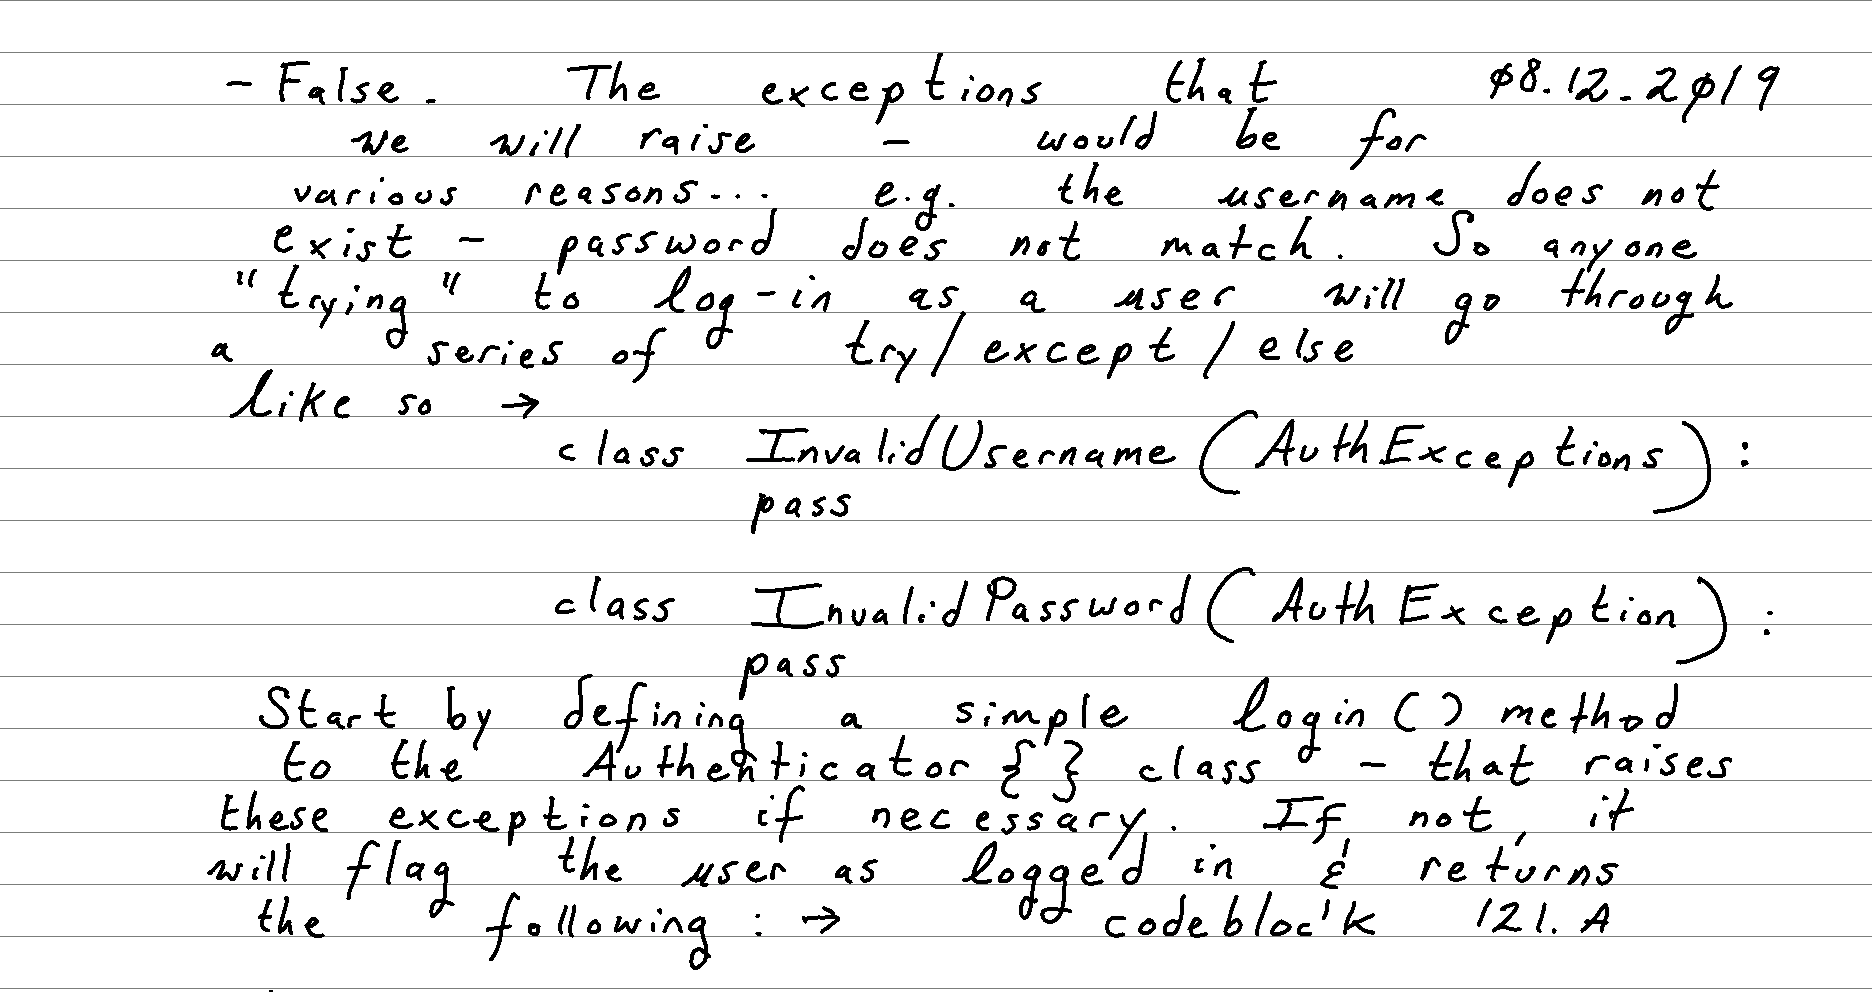 - False. The exceptions that ø8.12.2ø19
we will raise - would be for
various reasons... e.g. the username does not
exist - password does not match. So anyone
"trying" to log-in as a user will go through
a series of try/except/else
like so →
class InvalidUsername(AuthExceptions):
pass
class InvalidPassword(AuthException):
pass
Start by defining a simple login() method
to the Authenticator{} class - that raises
these exceptions if necessary. If not, it
will flag the user as logged in & returns
the following: → codeblock 121.A